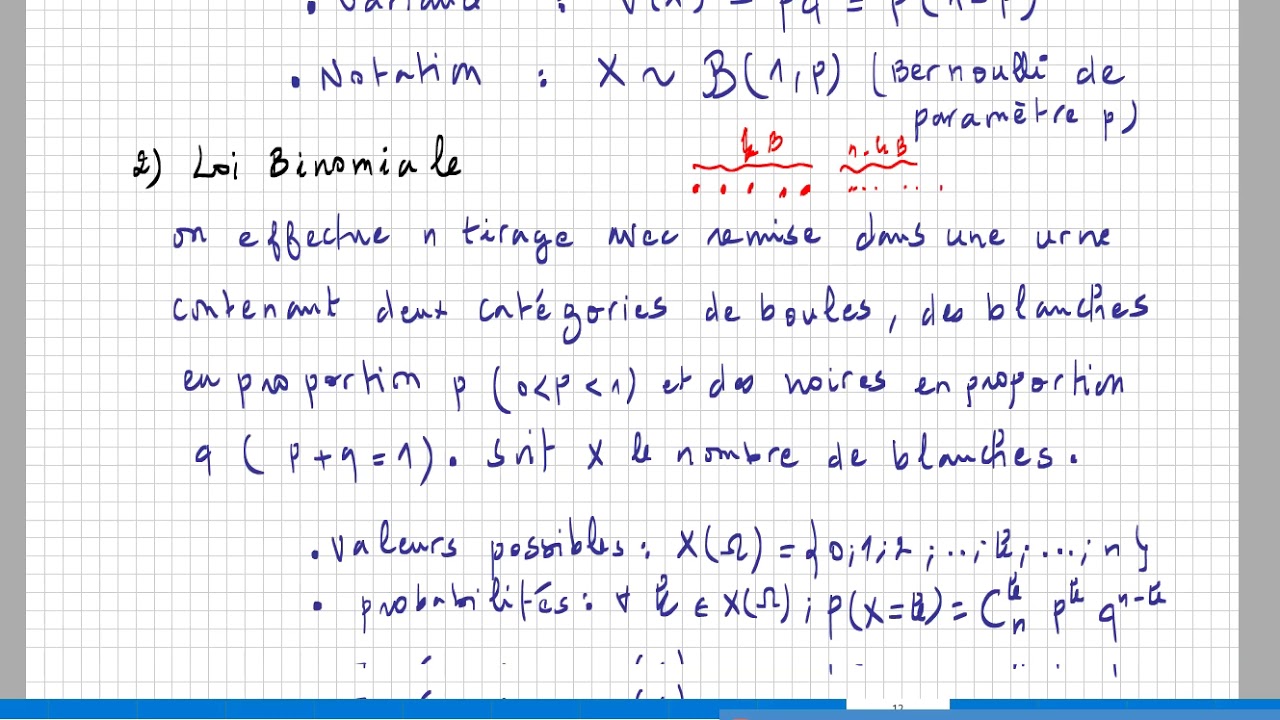 • Variance : V(X) = pq = p(1-p)
• Notation : X ~ B(1,p) (Bernoulli de
paramètre p)
2) Loi Binomiale
k B n-k B
on effectue n tirage avec remise dans une urne
contenant deux catégories de boules, des blanches
en proportion p (0<p<1) et des noires en proportion
q ( p+q=1). Soit X le nombre de blanches.
• valeurs possibles : X(Ω) = {0;1;2;...;k;...;n}
• probabilités : ∀ k ∈ X(Ω) ; p(X=k) = C_n^k p^k q^{n-k}
12